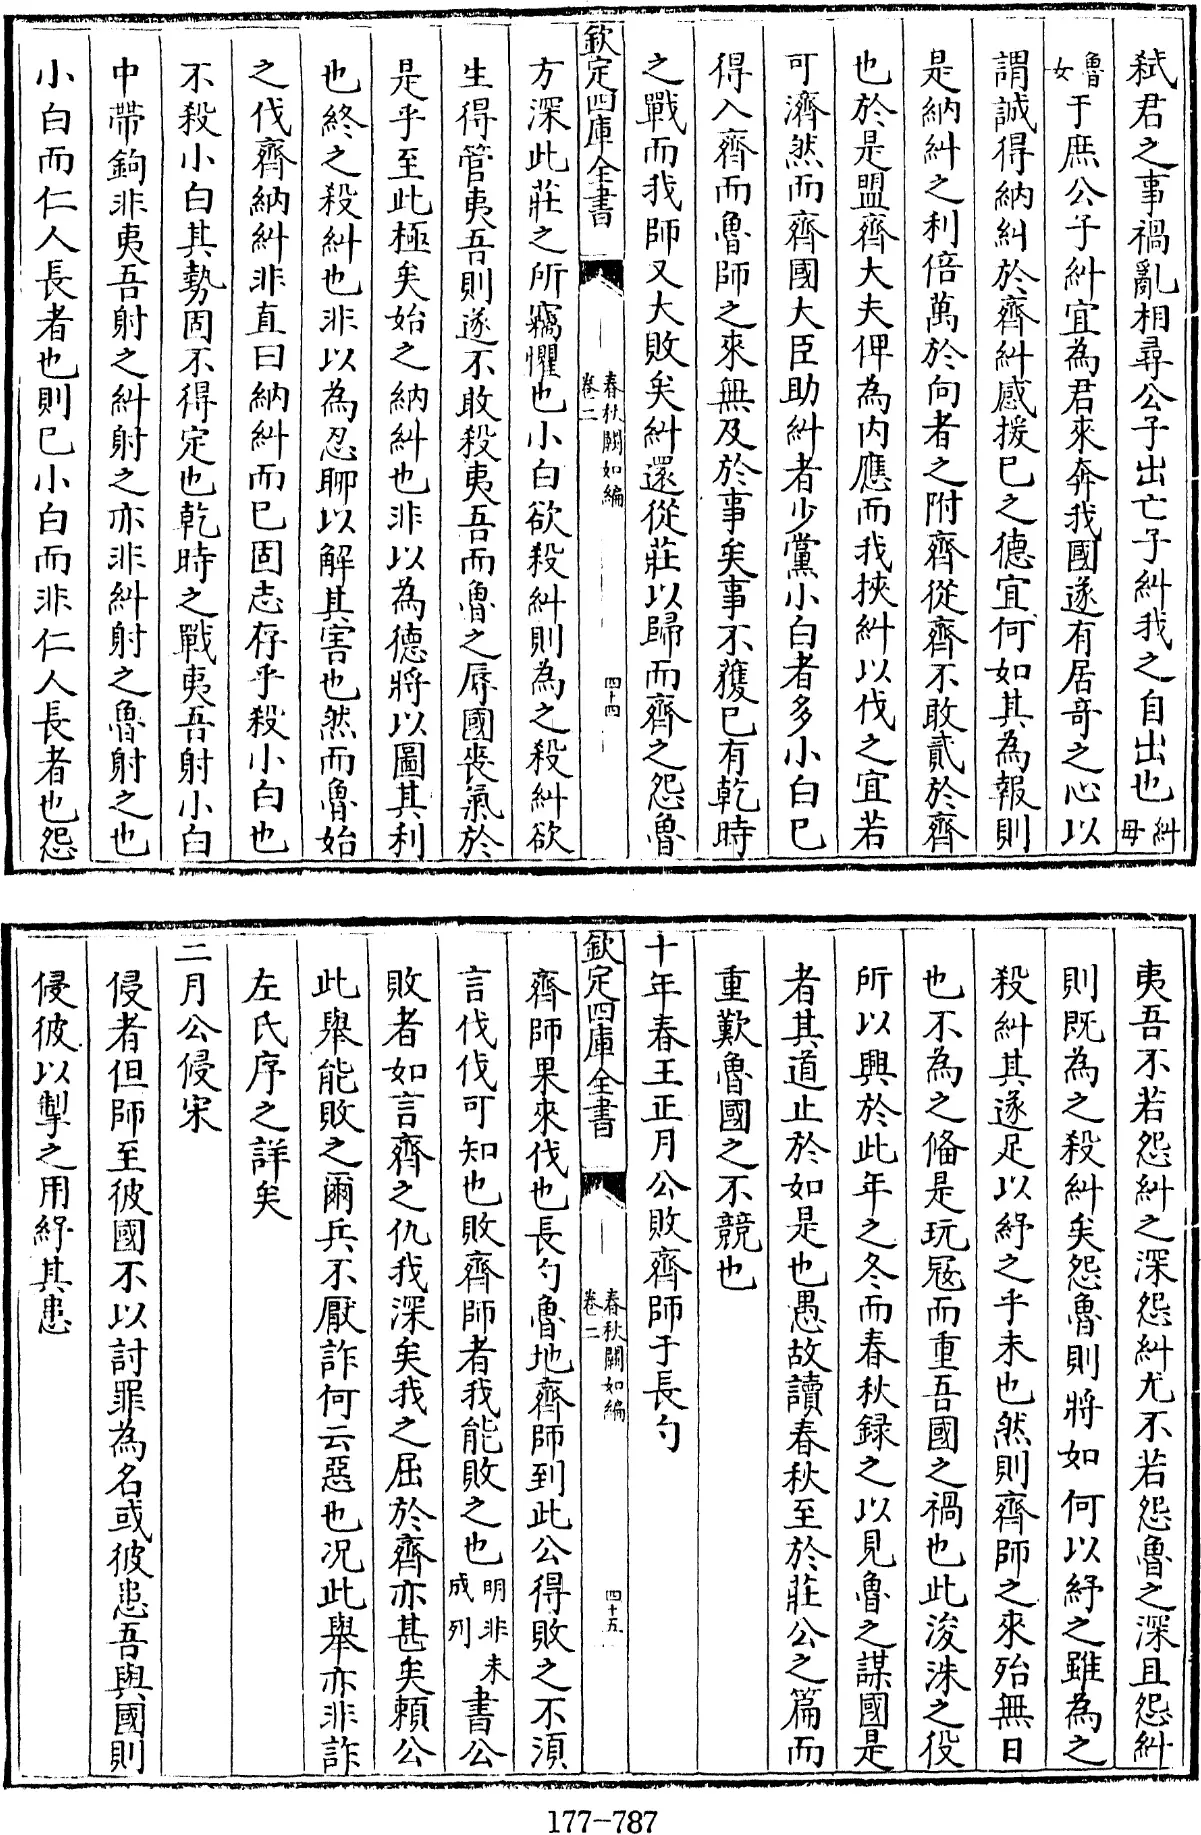 弑君之事禍亂相尋公子出亡子糾我之自出也糾母
魯女于庶公子糾宜為君來奔我國遂有居奇之心以
謂誠得納糾於齊糾感援已之德宜何如其為報則
是納糾之利倍萬於向者之附齊從齊不敢貳於齊
也於是盟齊大夫俾為内應而我挾糾以伐之宜若
可濟然而齊國大臣助糾者少黨小白者多小白已
得入齊而魯師之來無及於事矣事不獲已有乾時
之戰而我師又大敗矣糾還從莊以歸而齊之怨魯
欽定四庫全書
春秋闕如編
卷二
四十四
方深此莊之所竊懼也小白欲殺糾則為之殺糾欲
生得管夷吾則遂不敢殺夷吾而魯之辱國喪氣於
是乎至此極矣始之納糾也非以為德將以圖其利
也終之殺糾也非以為忍聊以解其害也然而魯始
之伐齊納糾非直曰納糾而已固志存乎殺小白也
不殺小白其勢固不得定也乾時之戰夷吾射小白
中帶鉤非夷吾射之糾射之亦非糾射之魯射之也
小白而仁人長者也則已小白而非仁人長者也怨
夷吾不若怨糾之深怨糾尤不若怨魯之深且怨糾
則既為之殺糾矣怨魯則將如何以紓之雖為之
殺糾其遂足以紓之乎未也然則齊師之來殆無日
也不為之備是玩寇而重吾國之禍也此浚洙之役
所以興於此年之冬而春秋録之以見魯之謀國是
者其道止於如是也愚故讀春秋至於莊公之篇而
重歎魯國之不競也
十年春王正月公敗齊師于長勺
欽定四庫全書
春秋闕如編
卷二
四十五
齊師果來伐也長勺魯地齊師到此公得敗之不須
言伐伐可知也敗齊師者我能敗之也明非未成列書公
敗者如言齊之仇我深矣我之屈於齊亦甚矣賴公
此舉能敗之爾兵不厭詐何云惡也况此舉亦非詐
左氏序之詳矣
二月公侵宋
侵者但師至彼國不以討罪為名或彼患吾與國則
侵彼以掣之用紓其患
177-787